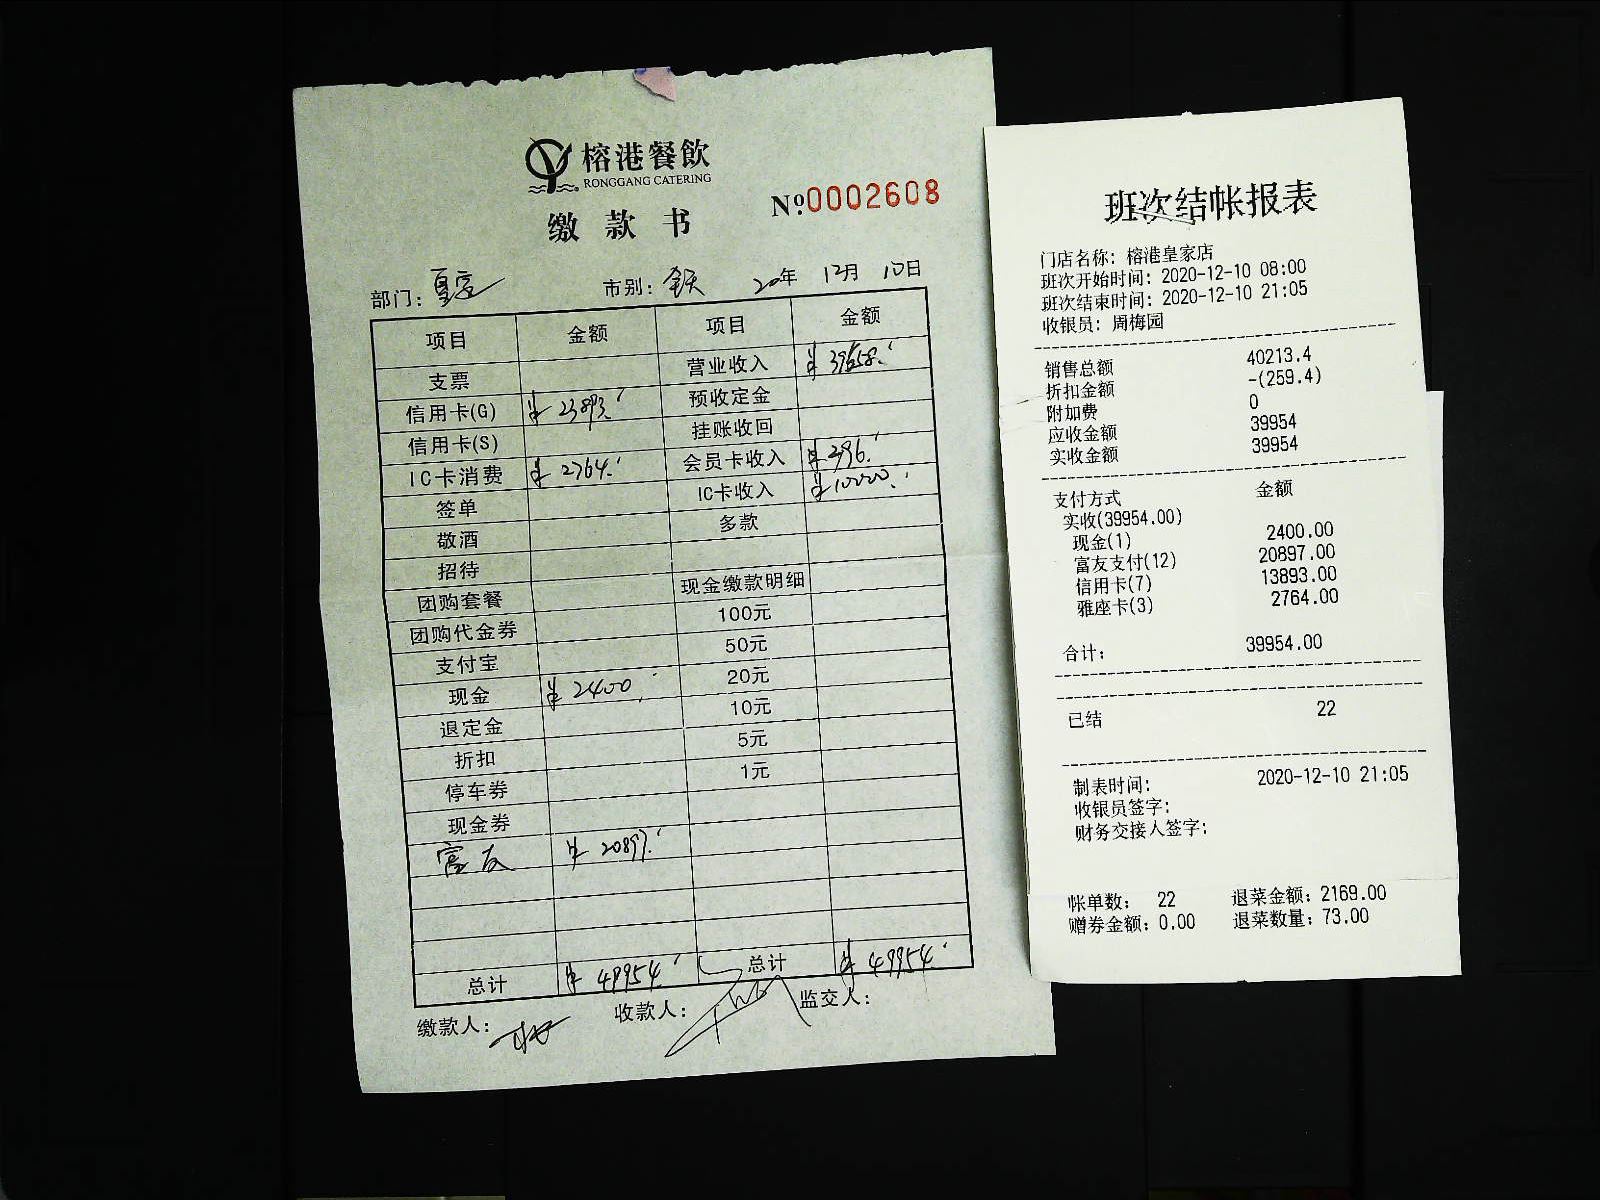 榕港餐飲
RONGGANG CATERING
缴款书
№0002608
部门: 市别: 全天 20年 12月 10日
项目 金额 项目 金额
支票 营业收入 ¥39658.
信用卡(G) ¥23893. 预收定金
信用卡(S) 挂账收回
IC卡消费 ¥2764. 会员卡收入 ¥296.
签单 IC卡收入 ¥10000.
敬酒 多款
招待
团购套餐 现金缴款明细
团购代金券 100元
支付宝 50元
现金 ¥2400. 20元
退定金 10元
折扣 5元
停车券 1元
现金券
富友 ¥20897.
总计 ¥49954. 总计 ¥49954.
缴款人: 收款人: 监交人:
班次结帐报表
门店名称: 榕港皇家店
班次开始时间: 2020-12-10 08:00
班次结束时间: 2020-12-10 21:05
收银员: 周梅园
销售总额 40213.4
折扣金额 -(259.4)
附加费 0
应收金额 39954
实收金额 39954
支付方式 金额
实收(39954.00)
现金(1) 2400.00
富友支付(12) 20897.00
信用卡(7) 13893.00
雅座卡(3) 2764.00
合计: 39954.00
已结 22
制表时间: 2020-12-10 21:05
收银员签字:
财务交接人签字:
帐单数: 22 退菜金额: 2169.00
赠券金额: 0.00 退菜数量: 73.00